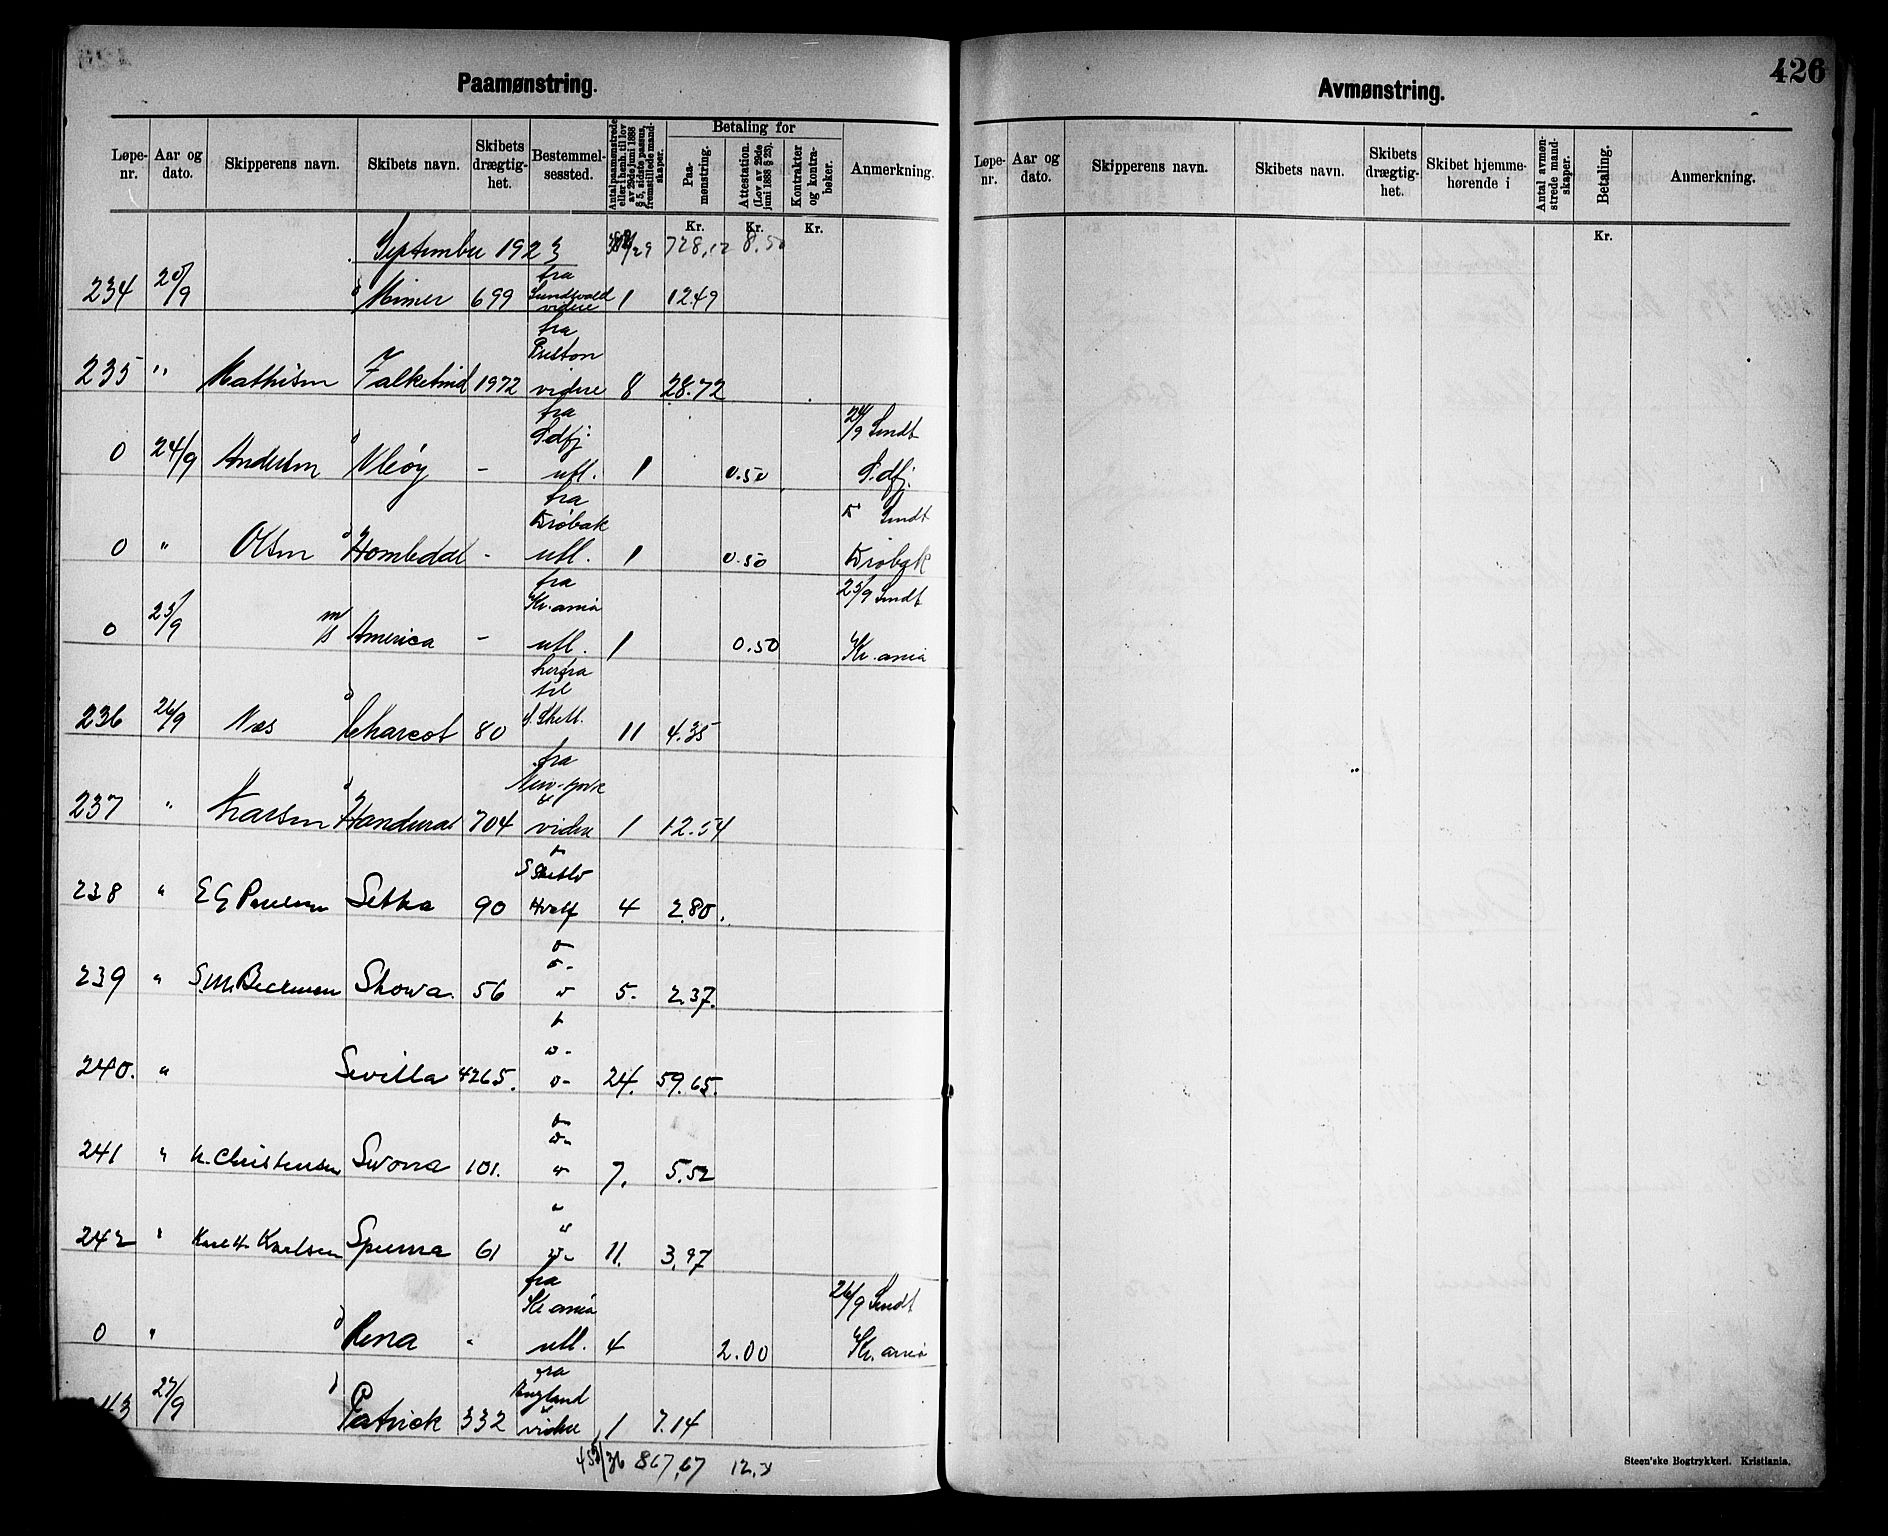 Paamønstring.
Løpe-nr. Aar og dato. Skipperens navn. Skibets navn. Skibets drægtig-het. Bestemmel-sessted. Antal paamønstrede eller i henh. til lov av 29de juni 1888 § 5, sidste passus, fremstillede mand-skaper. Betaling for Paa-mønstring. Attestation. (Lov av 29de juni 1888 § 25). Kontrakter og kontra-bøker. Anmerkning.
Kr. Kr. Kr.
September 1923 /29 728,12 8.50
234 20/9 Mimer 699 fra Sundsvald videre 1 12.49
235 " Mathisen Falketind 1972 fra Preston videre 8 28.72
0 24/9 Andersen - fra S.dfj. utl. 1 0.50 24/9 Sendt S.dfj.
0 " Olsen - fra Drøbak utl. 1 0.50 Sendt Drøbak
0 23/9 m/s America - fra Kr.ania utl. 1 0.50 25/9 Sendt Kr.ania
236 26/9 Næs Charcot 80 herfra til S. Shetl. 11 4.35
237 " Larsen 704 fra New-York videre 1 12.54
238 " E G Paulsen Setka 90 Hvalf 4 2.80.
239 " Skowa. 56 5. 2.37.
240. " Sevilla 4265. 24. 59.65.
241 " Christensen Swona 101. 7. 5.52
242 " Karlsen Spuma 61 11. 3.97
0 " Rena - fra Kr.ania utl. 4 2.00 26/9 Sendt Kr.ania
43 27/9 Patrick 332 fra England videre 1 7.14
/36 867,67
Avmønstring.
426
Løpe-nr. Aar og dato. Skipperens navn. Skibets navn. Skibets drægtig-het. Skibet hjemme-hørende i Antal avmøn-strede mand-skaper. Betaling. Anmerkning.
Kr.
Steen'ske Bogtrykkeri. Kristiania.